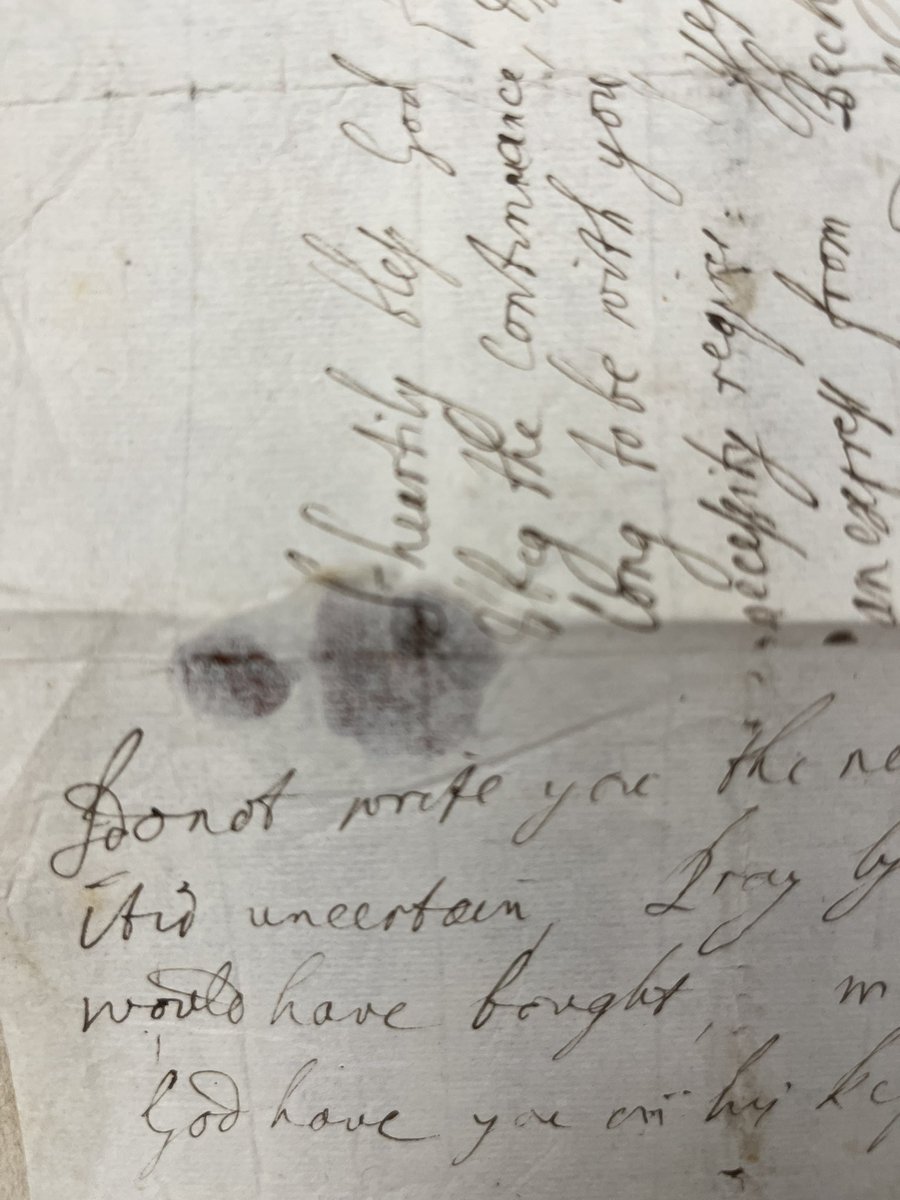 I heartily bless God
& beg the Continnance,
long to be with you
necessity reqire:
an express from Bech
I do not write you the ne
it is uncertain, Pray by
would have bought, m
God have you in his ke